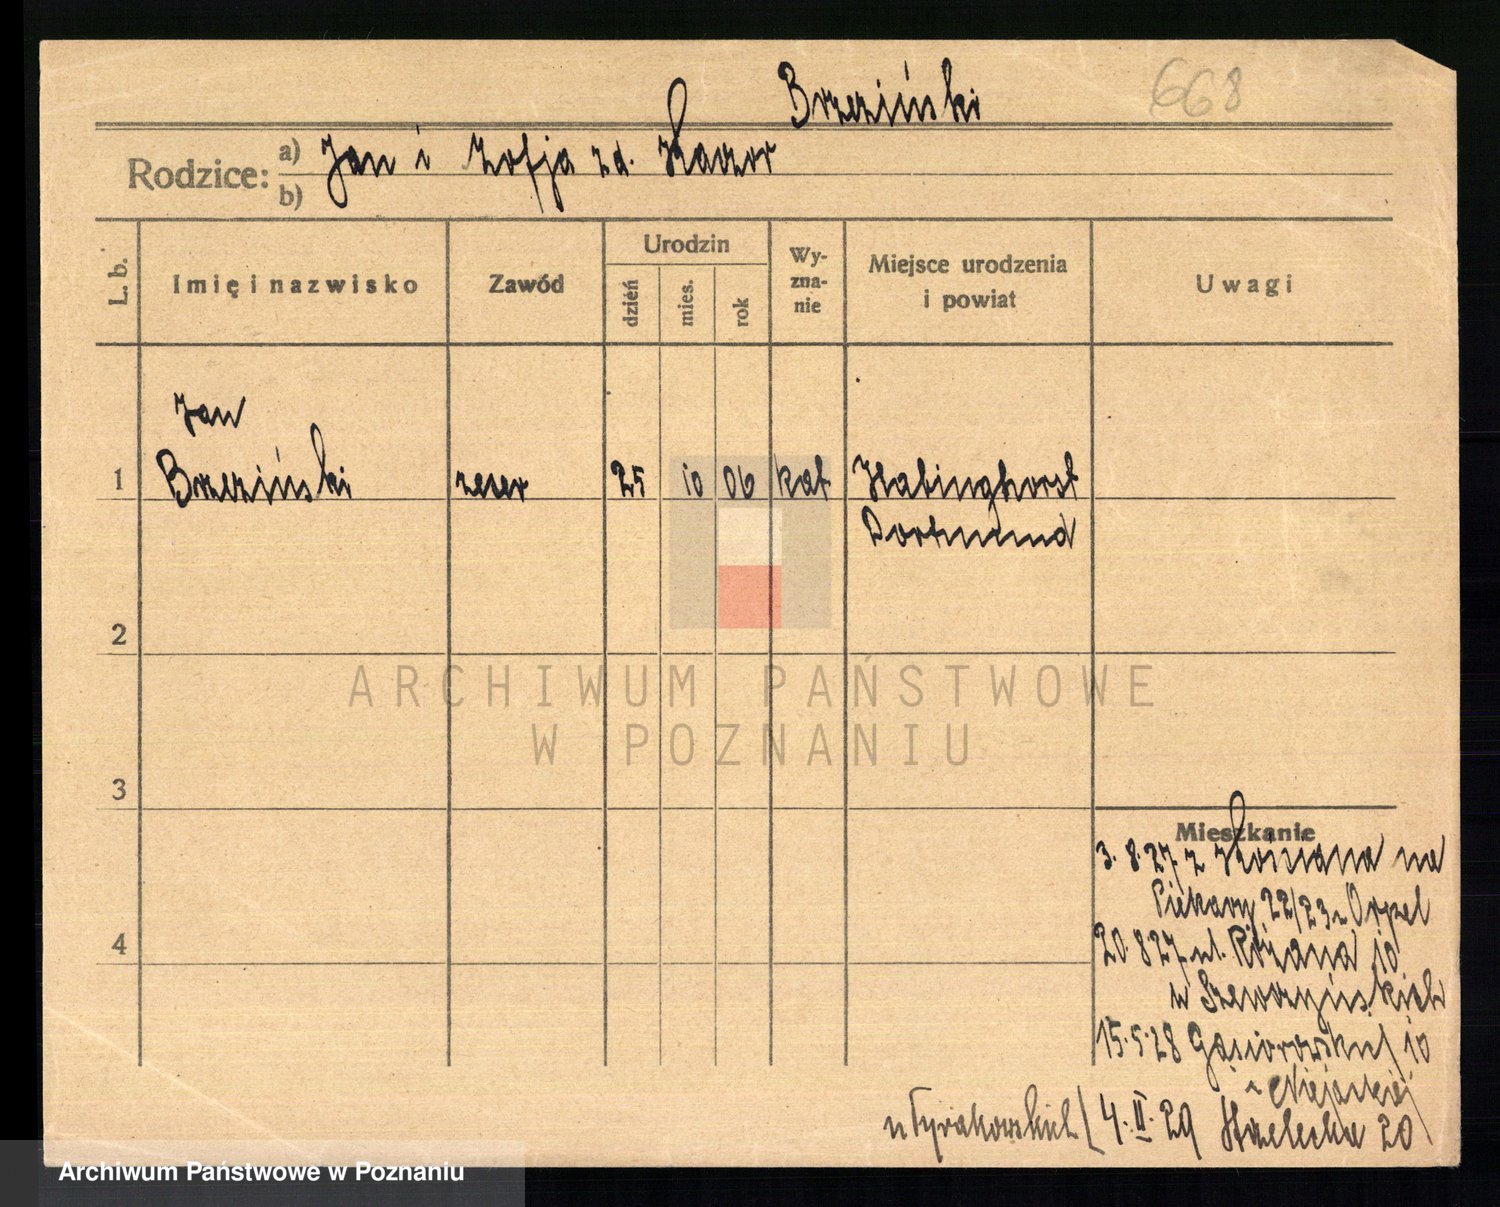 668
Brzeziński
Rodzice: a) Jan i Zofja zd. Kaczor
b)
L. b.
Imię i nazwisko
Zawód
Urodzin
dzień
mies.
rok
Wy-
zna-
nie
Miejsce urodzenia
i powiat
Uwagi
Jan
1 Brzeziński zecer 25 10 06 kat Habinghorst
Dortmund
2
ARCHIWUM PAŃSTWOWE
W POZNANIU
3
Mieszkanie
3. 8. 27 z Kościana na
Piekary 22/23 u Orpel
4
20. 8 27 ul. Różana 10
u Szewczyńskich
15. 5. 28 Gąsiorowskich 10
u Niejackiej
u Tyrakowskich / 4. II. 29 Strzelecka 20
Archiwum Państwowe w Poznaniu